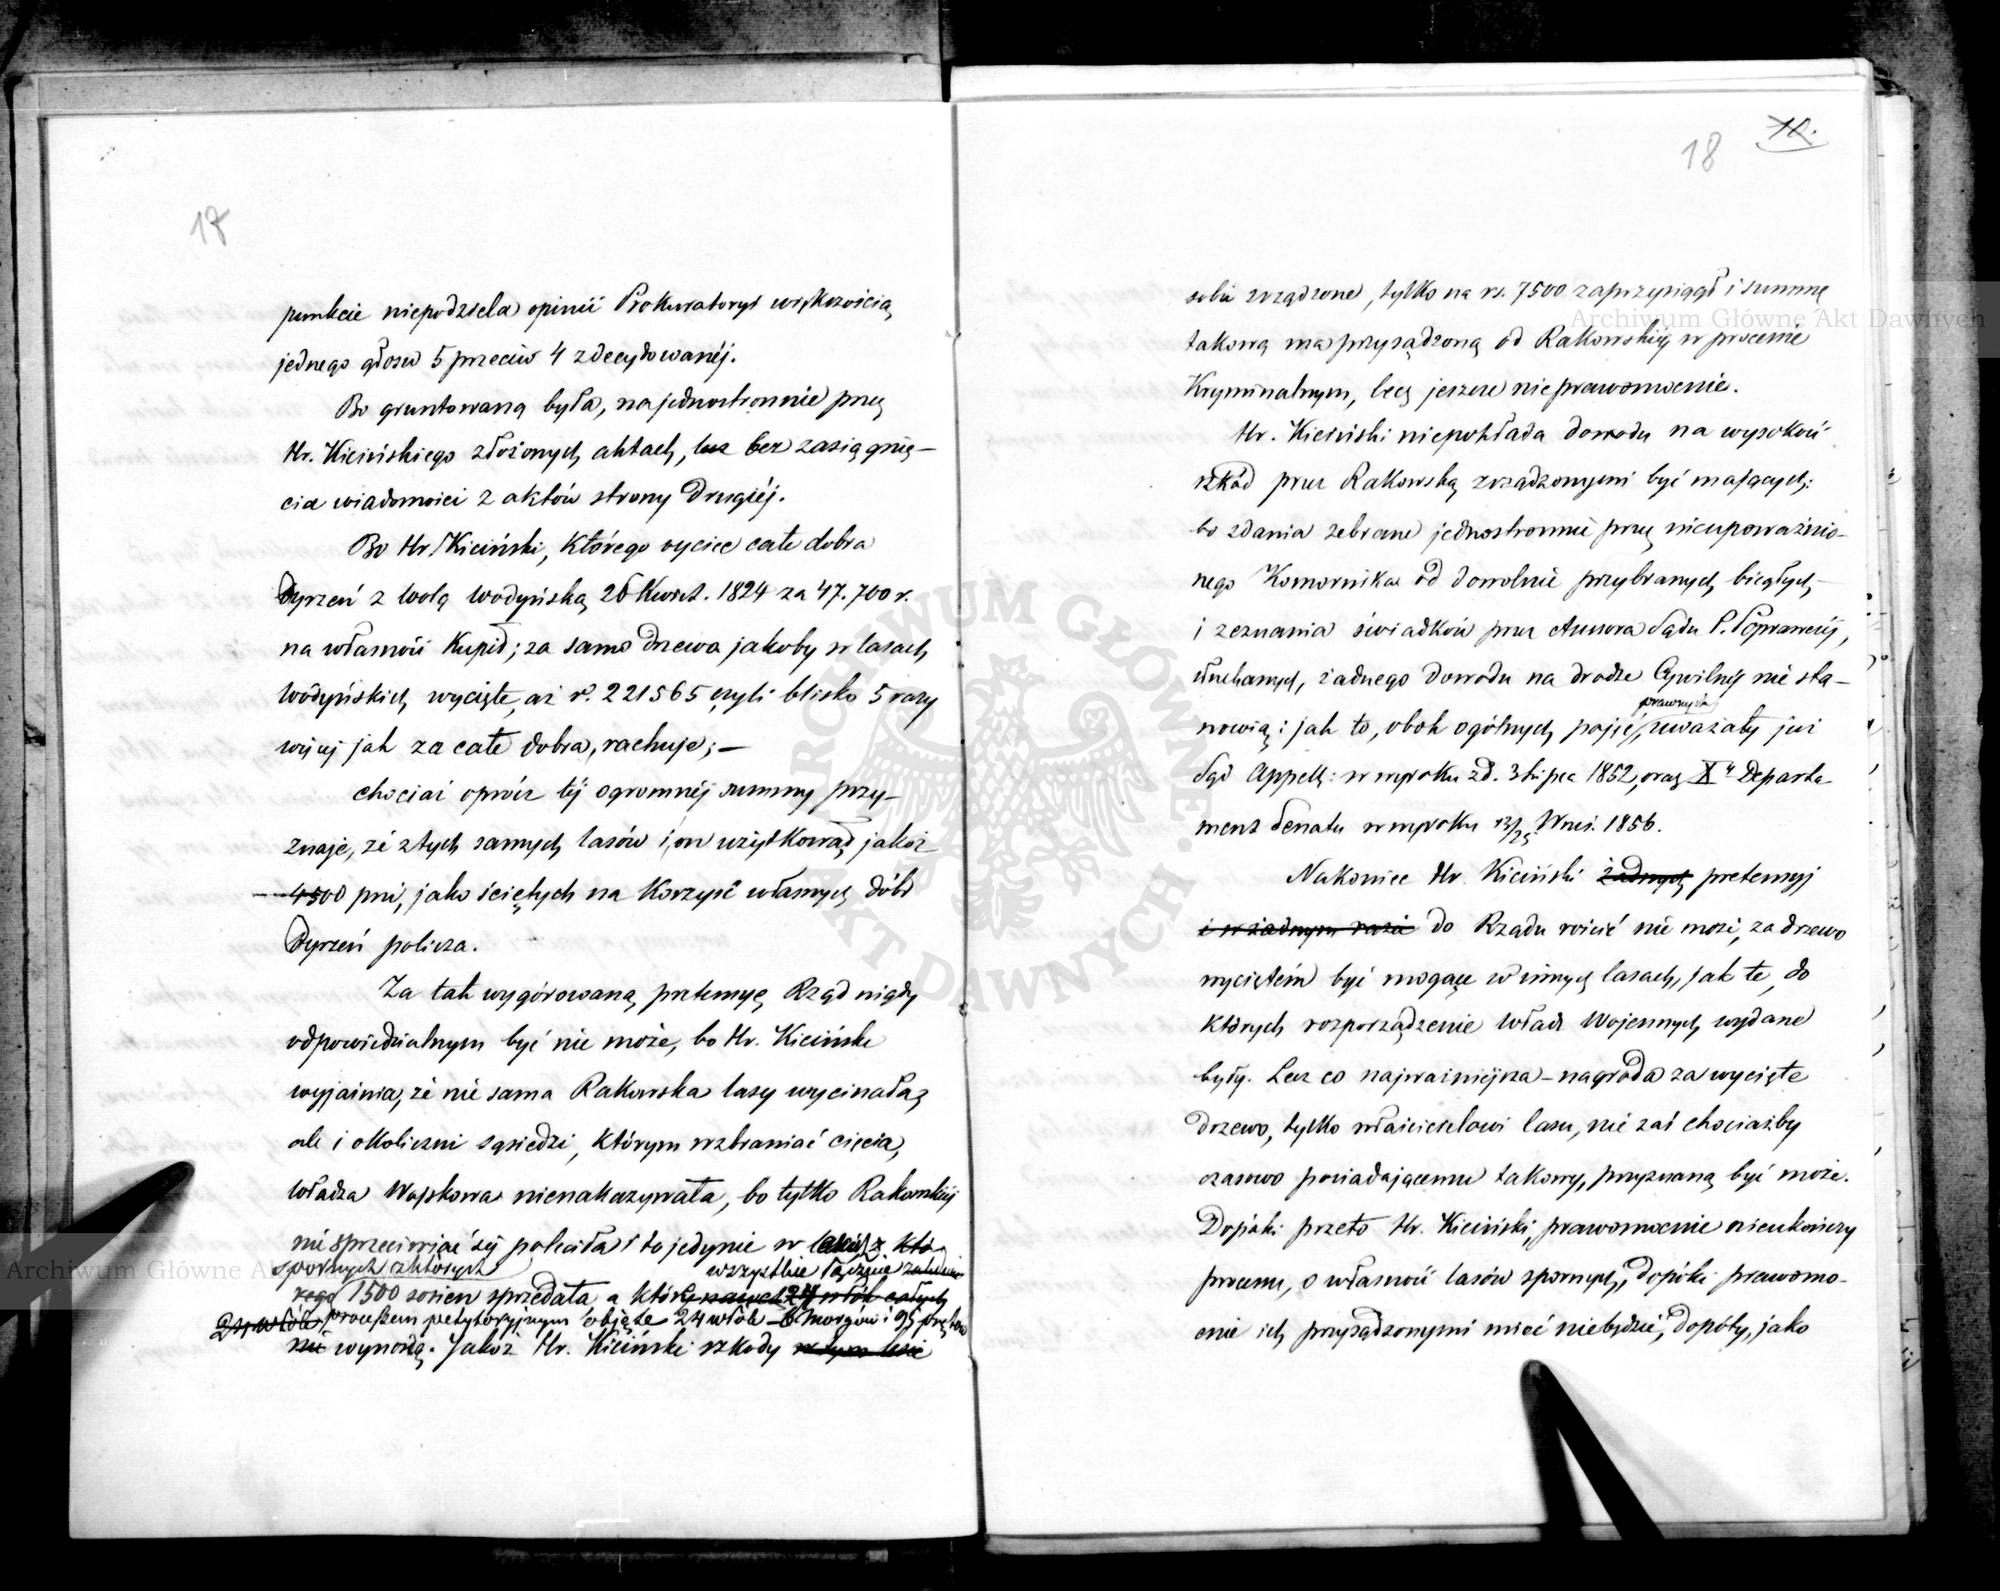 17
punkcie niepodziela opinii Prokuratoryi większością
jednego głosu 5 przeciw 4 zdecydowanéj.
Bo gruntowaną była, na jednostronnie przez
Hr. Kicińskiego złożonych aktach, bez zasiągnię-
cia wiadomości z aktów strony drugiéj.
Bo Hr. Kiciński, którego ojciec całe dobra
Dyrzeń z Wolą Wodyńską 26 Kwiet. 1824 za 47.700 r.
na własność kupił; za samo drzewo jakoby w lasach
Wodyńskich wycięte, aż rs. 221565 czyli blisko 5 razy
więcej jak za całe dobra, rachuje; —
chociaż oprócz téj ogromnéj summy przy-
znaje, że z tych samych lasów i on użytkował jakoż
4500 pni, jako ściętych na korzyść własnych dóbr
Dyrzeń policza.
Za tak wygórowaną pretensyę Rząd nigdy
odpowiedzialnym być nie może, bo Hr. Kiciński
wyjaśnia, że nie sama Rakowska lasy wycinała,
ale i okoliczni sąsiedzi, którym wzbraniać cięcia,
władza Wojskowa nienakazywała, bo tylko Rakowskiéj
nie sprzeciwiać się poleciła i to jedynie w lasach z któ-
spornych z których wszystkie łącznie
rego 1500 sosien sprzedała a które nawet 24 włók całych
24 włók processem petytoryjnym objęte 24 włók 6 morgów i 95 prętów
nie wynoszą. Jakoż Hr. Kiciński szkody w tym lesie
18 10.
sobie zrządzone, tylko na rs. 7500 zaprzysiągł i summę
takową ma przysądzoną od Rakowskiéj w procesie
Kryminalnym, lecz jeszcze nieprawomocnie.
Hr. Kiciński niepokłada dowodu na wysokość
szkód przez Rakowską zrządzonymi być mających:
bo zdania zebrane jednostronnie przez nieupoważnio-
nego Komornika od dowolnie przybranych biegłych,
i zeznania świadków przez Assessora Sądu P. Poprawczéj,
słuchanych, żadnego dowodu na drodze Cywilnéj nie sta-
prawnych
nowią: jak to, obok ogólnych pojęć, uważały już
Sąd Appell: w wyroku z d. 3 Lipca 1852, oraz X-y Departa-
ment Senatu w wyroku 13/25 Wrześ. 1856.
Nakoniec Hr. Kiciński żadnych pretensyj
i w żadnym razie do Rządu rościć nie może, za drzewo
wycięteḿ być mogące w innych lasach, jak te, do
których rozporządzenie Władz Wojennych wydane
były. Lecz co najważniejsza – nagroda za wycięte
drzewo, tylko właścicielowi lasu, nie zaś chociażby
czasowo posiadającemu takowy, przyznaną być może.
Dopóki przeto Hr. Kiciński, prawomocnie nieukończy
processu, o własność lasów spornych, dopóki prawomo-
cnie ich przysądzonymi mieć niebędzie, dopóty, jako